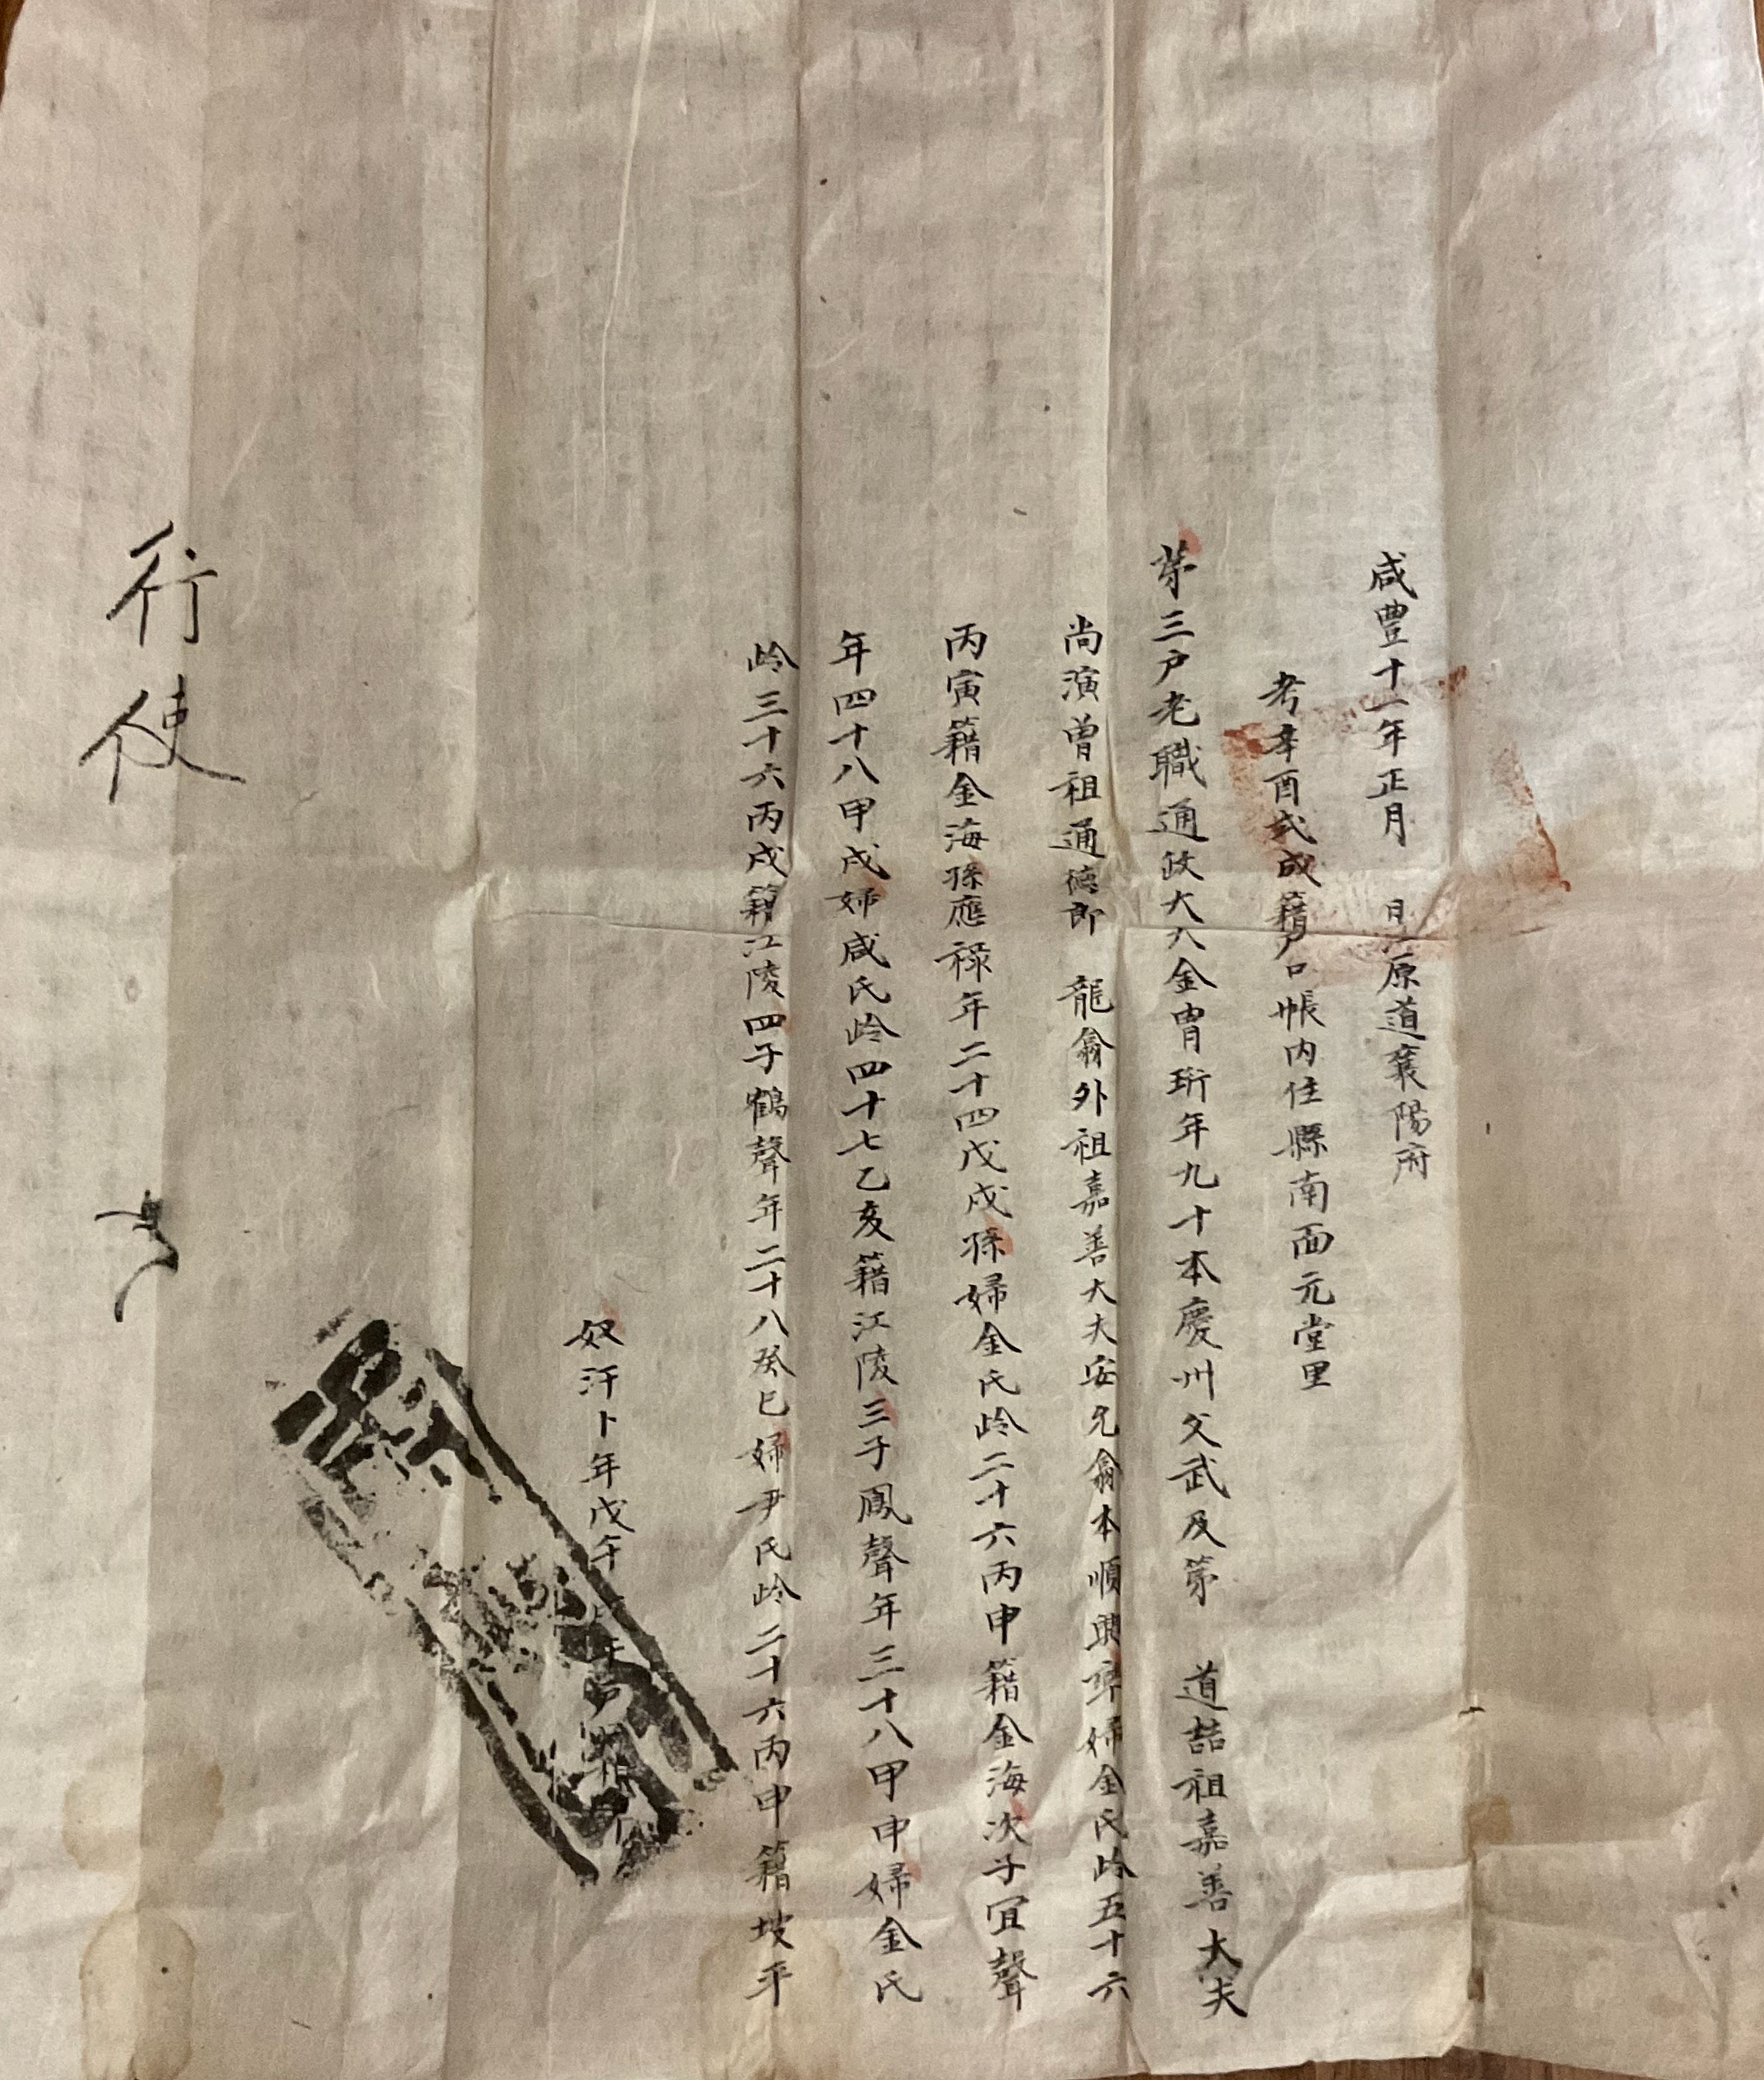 咸豊十一年正月 日 原道襄陽府
考辛酉式成籍戸口帳内住縣南面元堂里
苐三戸老職通政大夫金胄珩年九十本慶州父武及苐 道喆祖嘉善大夫
尚演曽祖通德郎 龍翕外祖嘉善大夫安允翕本順興率婦金氏齡五十六
丙寅籍金海孫應祿年二十四戊戌孫婦金氏齡二十六丙申籍金海次子宜聲
年四十八甲戌婦咸氏齡四十七乙亥籍江陵三子鳳聲年三十八甲申婦金氏
齡三十六丙戌籍江陵四子鶴聲年二十八癸巳婦尹氏齡二十六丙申籍坡平
奴汗卜年戊午
行
使